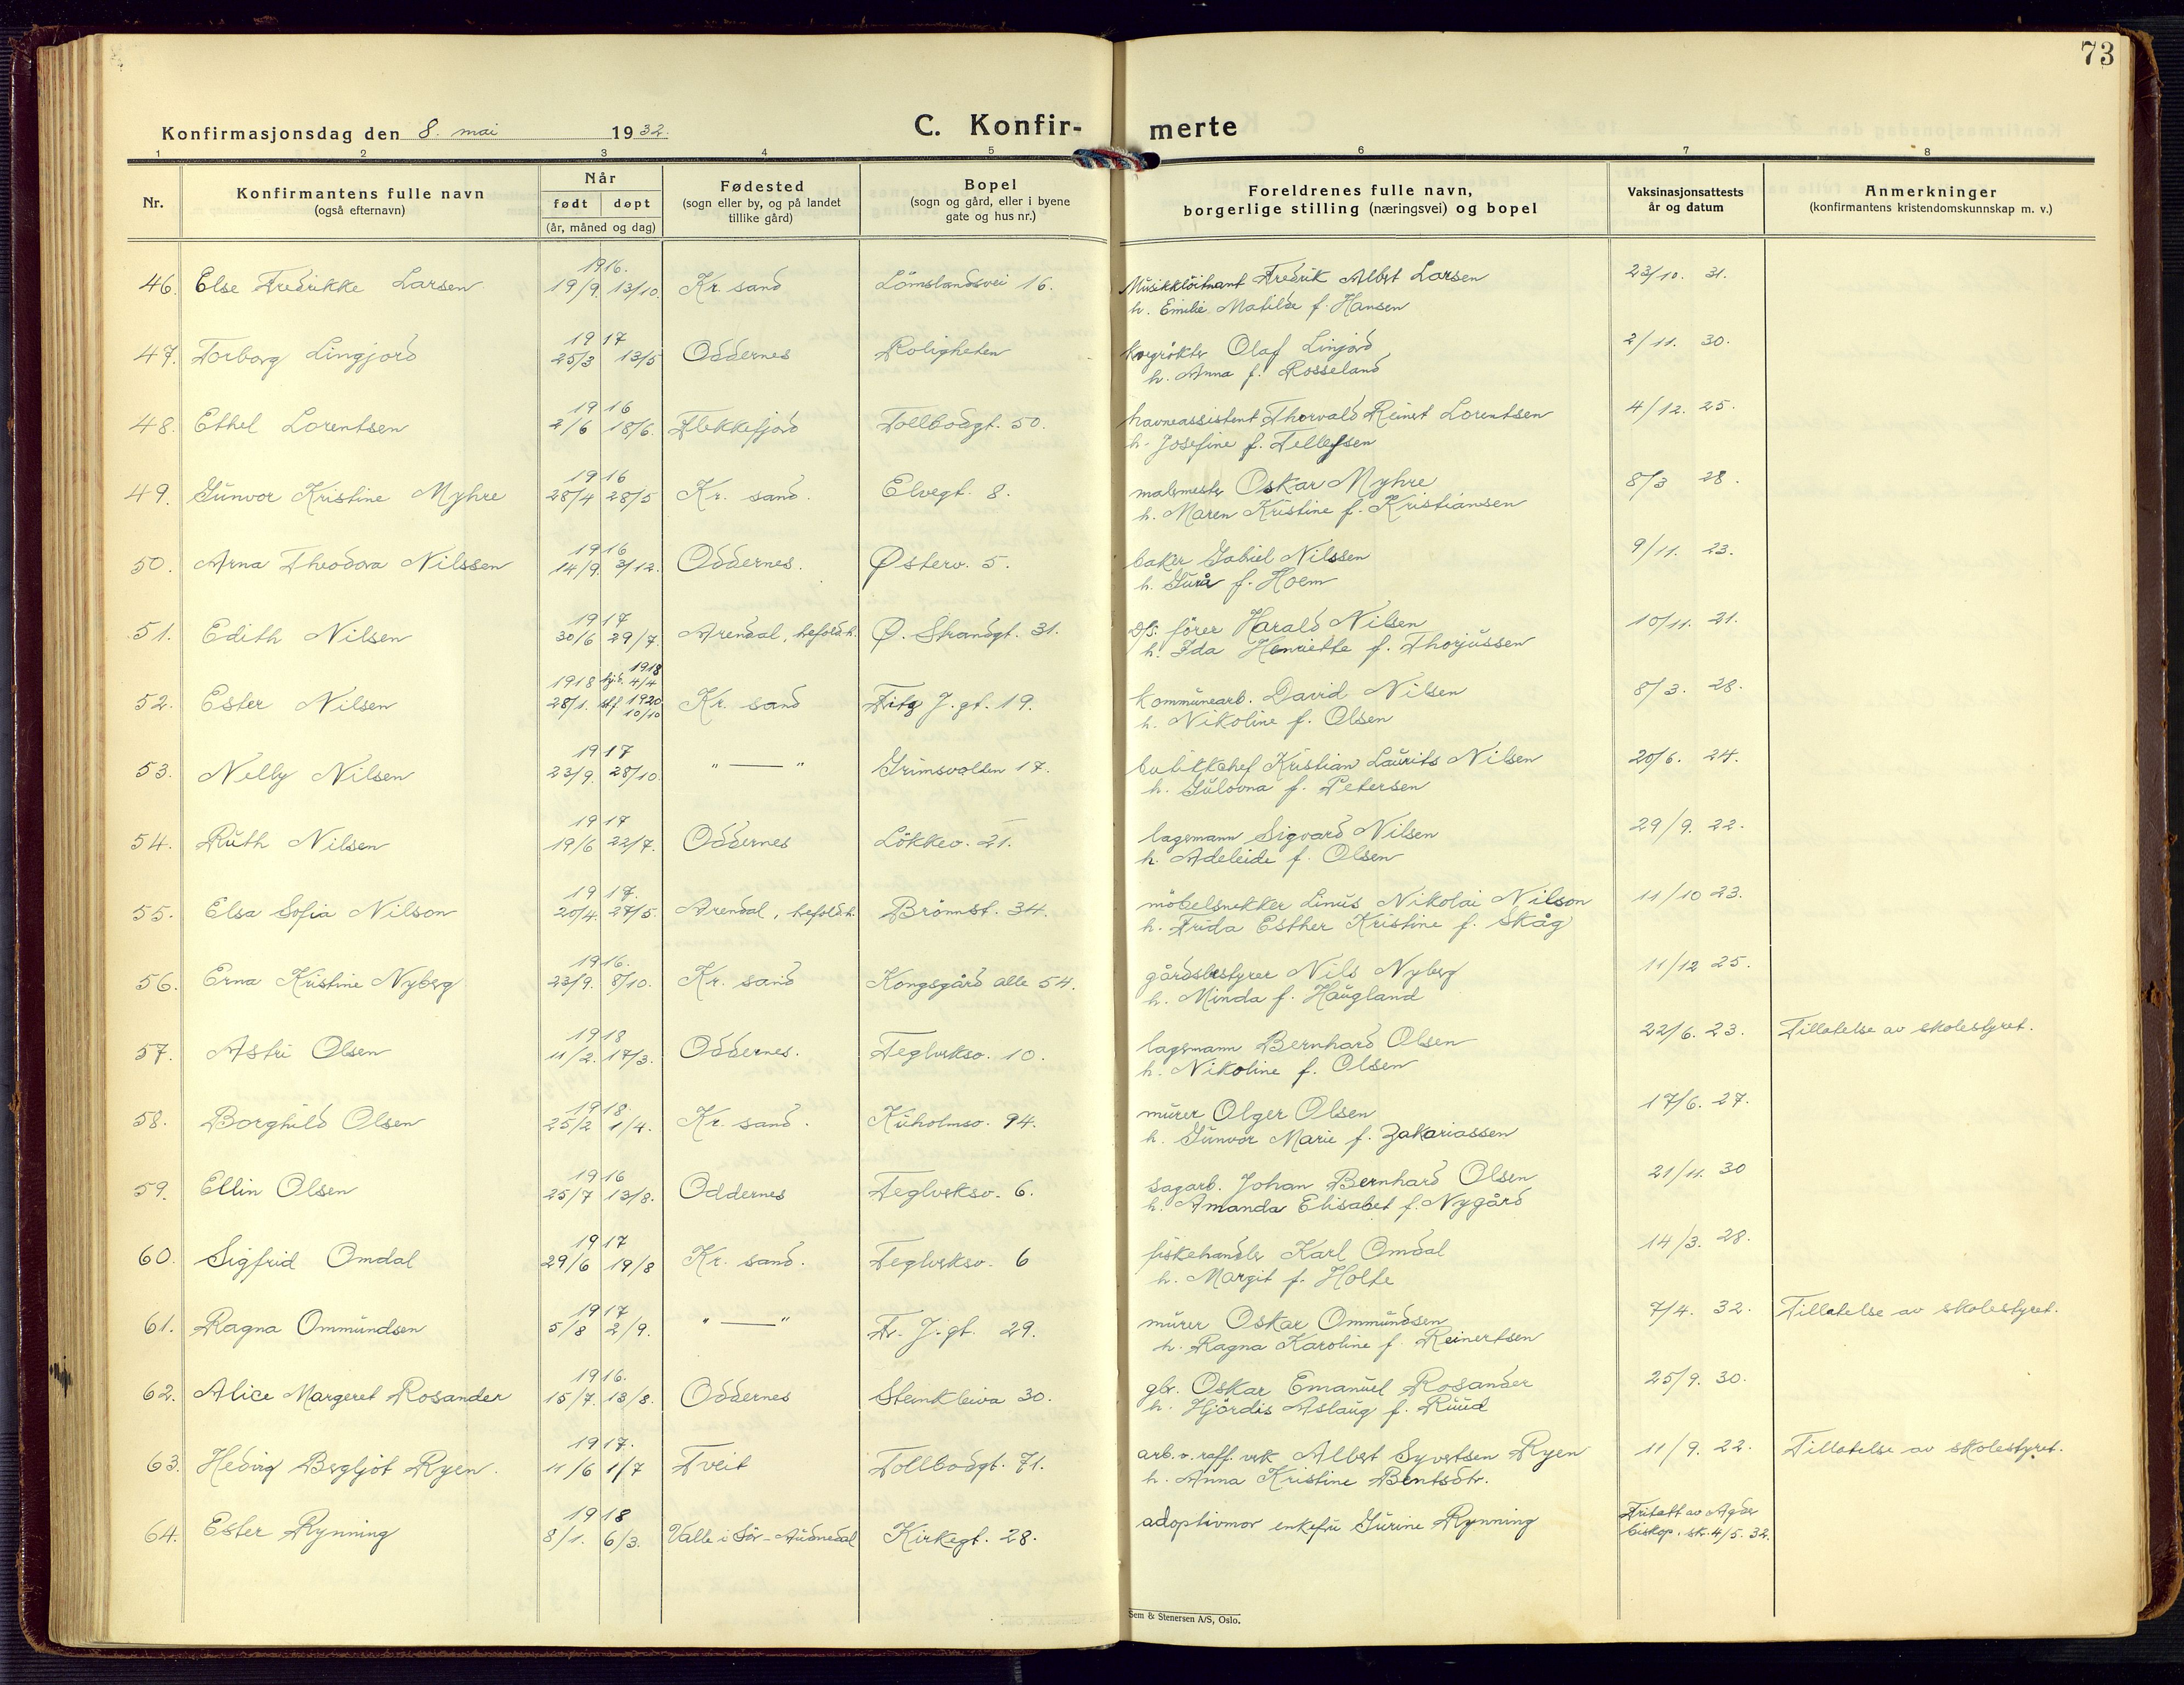 73
Konfirmasjonsdag den 8. mai 1932.
C. Konfirmerte
1 2 3 4 5 6 7 8
Nr.
Konfirmantens fulle navn
(også efternavn)
Når
født døpt
(år, måned og dag)
Fødested
(sogn eller by, og på landet
tillike gård)
Bopel
(sogn og gård, eller i byene
gate og hus nr.)
Foreldrenes fulle navn,
borgerlige stilling (næringsvei) og bopel
Vaksinasjonsattests
år og datum
Anmerkninger
(konfirmantens kristendomskunnskap m. v.)
1916.
46. Else Fredrikke Larsen 19/9. 13/10. Kr. sand Lömslandsvei 16. Musikklöitnant Fredrik Albert Larsen 23/10. 31.
h. Emilie Matilde f. Hansen
1917
47. Torborg Lingjord 25/3 13/5 Oddernes Roligheten Olaf Linjord 2/11. 30.
h. Anna f. Rosseland
1916
48. Ethel Lorentsen 2/6 18/6. Flekkefjord Tollbodgt. 50. havneassistent Thorvald Reinert Lorentsen 4/12. 25.
h. Josefine f. Tellefsen
1916
49. Gunvor Kristine Myhre 28/4 28/5 Kr. sand. Elvegt. 8. malermester Oskar Myhre 8/3 28.
h. Maren Kristine f. Kristiansen
1916
50. Arna Theodora Nilssen 14/9. 3/12. Oddernes. Østerv. 5. baker Gabriel Nilssen 9/11. 23.
h. Gurå f. Hoem
1917
51. Edith Nilsen 30/6 29/7. Arendal, trefold.h. Ø. Strandgt. 31. D/S. förer Harald Nilsen 10/11. 21.
h. Ida Henriette f. Thorjussen
1918 hj.d. 1918 4/4
52. Ester Nilsen 28/1. stf. 1920 10/10 Kr. sand Fitz J. gt. 19. kommunearb. David Nilsen 8/3. 28.
h. Nikoline f. Olsen
1917
53. Nelly Nilsen 23/9. 28/10. " — " Grimsvolden 17. butikkchef Kristian Laurits Nilsen 20/6. 24.
h. Gulovna f. Petersen
1917
54. Ruth Nilsen 19/6 22/7. Oddernes Lökkev. 21. lagermann Sigvard Nilsen 29/9. 22.
h. Adeleide f. Olsen
1917.
55. Elsa Sofia Nilson 20/4. 27/5. Arendal, trefold.h. Brönnst. 34. möbelsnekker Linus Nikolai Nilson 11/10 23.
h. Frida Esther Kristine f. Skåg
1916.
56. Erna Kristine Nyberg 23/9. 8/10. Kr. sand Kongsgård alle 54. gårdsbestyrer Nils Nyberg 11/12 25.
h. Minda f. Haugland
1918
57. Astri Olsen 11/2. 17/3. Oddernes. Teglverksv. 10. lagermann Bernhard Olsen 22/6. 23. Tillatelse av skolestyret.
h. Nikoline f. Olsen
1918
58. Borghild Olsen 25/2 1/4. Kr. sand. Kuholmsv. 94. murer Olger Olsen 17/6. 27.
h. Gunvor Marie f. Zakariassen
1916
59. Ellin Olsen 25/7 13/8. Oddernes Teglverksv. 6. sagarb. Johan Bernhard Olsen 21/11. 30
h. Amanda Elisabet f. Nygård
1917
60. Sigfrid Omdal 29/6 19/8 Kr. sand. Teglverksv. 6 fiskehandler Karl Omdal 14/3. 28.
h. Margit f. Holte
1917
61. Ragna Ommundsen 5/8 2/9. " — " Fr. J. gt. 29. murer Oskar Ommundsen 7/4. 32. Tillatelse av skolestyret.
h. Ragna Karoline f. Reinertsen
1916.
62. Alice Margeret Rosander 15/7. 13/8. Oddernes Steinkleiva 30. gbr. Oskar Emanuel Rosander 25/9. 30.
h. Hjördis Aslaug f. Ruud
1917.
63. Hedvig Bergljot Ryen. 11/6 1/7 Tveit Tollbodgt. 71. arb. v. raff. verk Albert Syvertsen Ryen 11/9. 22. Tillatelse av skolestyret.
h. Anna Kristine Bentsdtr.
1918
64. Ester Rynning 8/1. 6/3. Valle i Sör-Audnedal Kirkegt. 28. adoptivmor enkefru Gurine Rynning Fritatt av Agder
biskop. skr. 4/5. 32.
Sem & Stenersen A/S, Oslo.